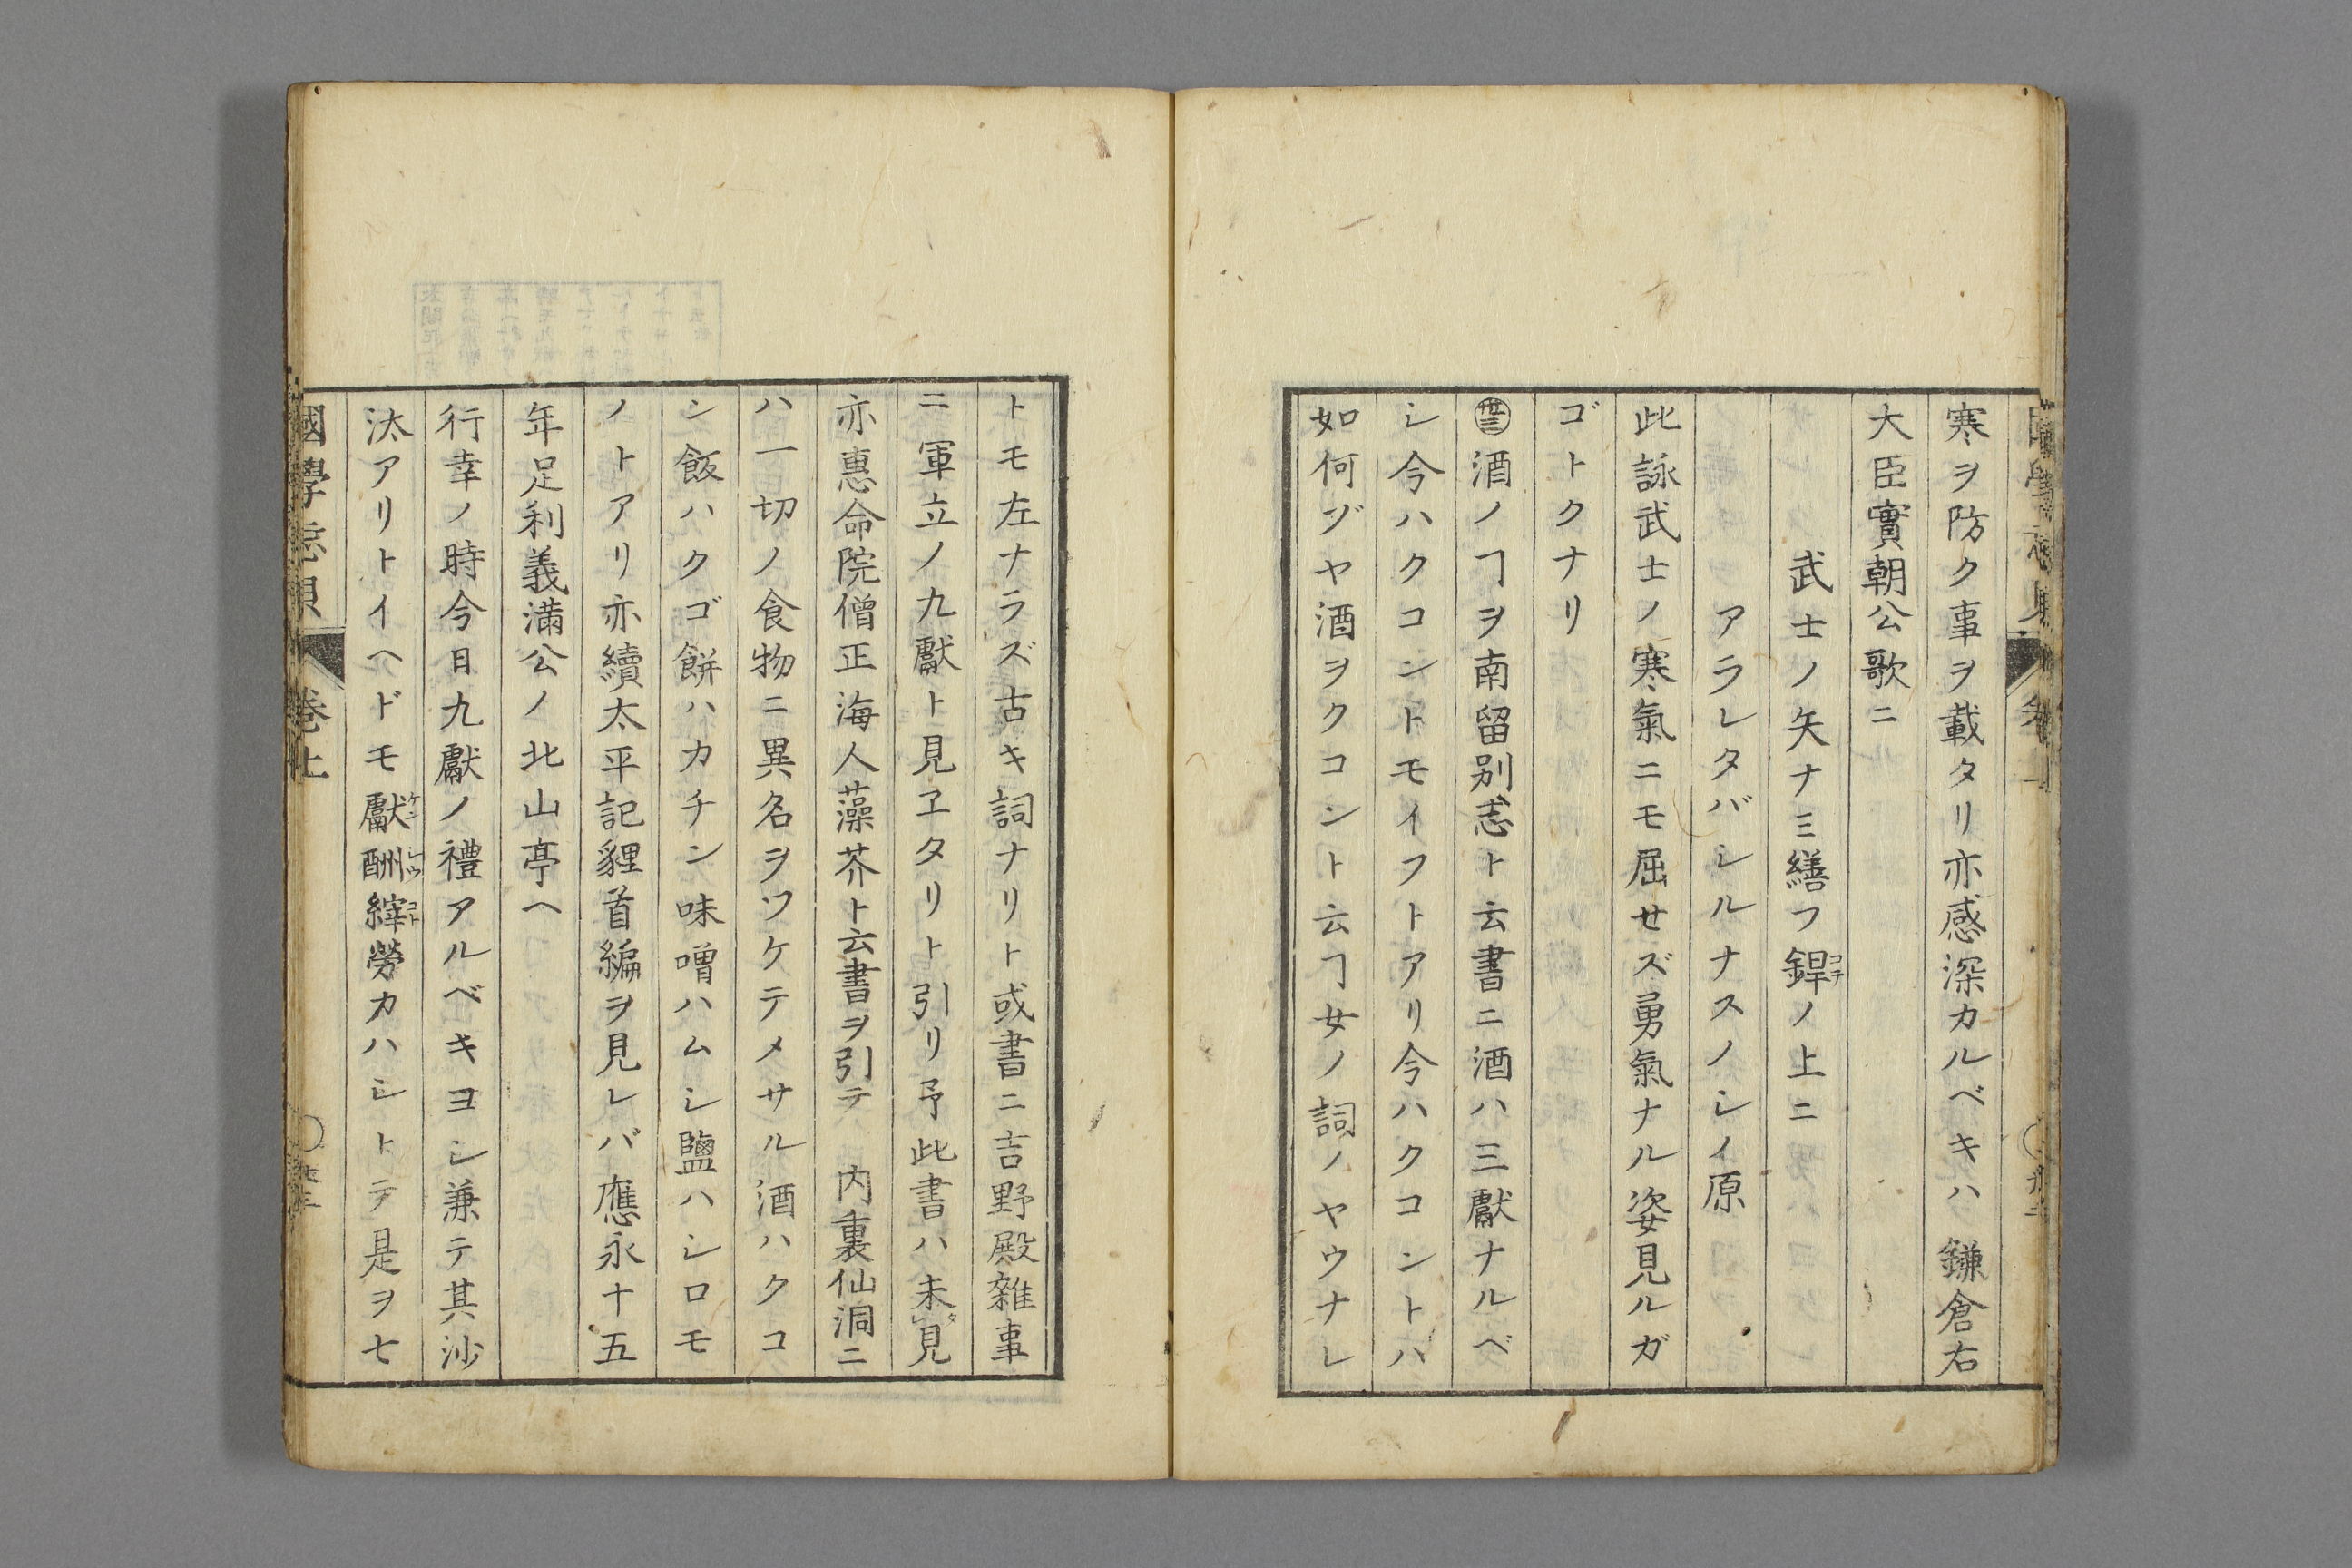 寒ヲ防ク事ヲ載タリ亦感深カルベキハ鎌倉右
大臣實朝公歌ニ
武士ノ矢ナミ繕フ銲ノ上ニ
コチ
アラレタバシルナスノシノ原
此詠武士ノ寒氣ニモ屈セズ勇氣ナル姿見ルガ
ゴトクナリ
㊂酒ノヿヲ南留别志ト云書ニ酒ハ三獻ナルベ
シ今ハクコントモイフトアリ今ハクコントハ
如何ゾヤ酒ヲクコント云ヿ女ノ詞ノヤウナレ
トモ左ナラズ古キ詞ナリト或書ニ吉野殿雜事
ニ軍立ノ九獻ト見ヱタリト引リ予此書ハ未見
亦惠命院僧正海人藻芥ト云書ヲ引テ 内裏仙洞ニ
ハ一切ノ食物ニ異名ヲツケテメサル酒ハクコ
ン飯ハクゴ餅ハカチン味噌ハムシ鹽ハシロモ
ノトアリ亦續太平記貍首編ヲ見レバ應永十五
年足利義滿公ノ北山亭ヘ
行幸ノ時今日九獻ノ禮アルベキヨシ兼テ其沙
汰アリトイヘドモ獻酬縡勞カハシトテ是ヲ七
ケン シウ コト
國學忘貝 卷上